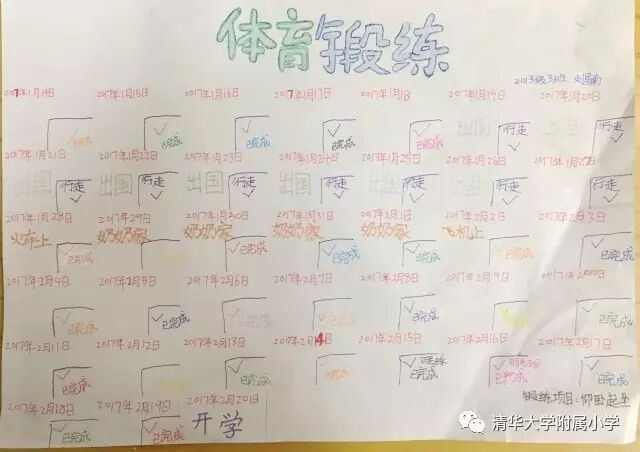 体育锻炼
2013级3班
2017年1月14日 2017年1月15日 2017年1月16日 2017年1月17日 2017年1月18 2017年1月19日 2017年1月20日
已完成 已完成 已完成 已完成 出国 行走
2017年1月21日 2017年1月22日 2017年1月23日 2017年1月24日 2017年1月25日 2017年1月26日 2017年1月27日
出国 行走 出国 行走 出国 行走 出国 行走 出国 行走 出国 行走 行走
2017年1月28日 2017年1月29日 2017年1月30日 2017年1月31日 2017年2月1日 2017年2月2日 2017年2月3日
火车上 奶奶家 奶奶家 奶奶家 奶奶家 飞机上
已完成 已完成 已完成 已完成 已完成 已完成
2017年2月4日 2017年2月5日 2017年2月6日 2017年2月7日 2017年2月8日 2017年2月9日 2017年2月10日
已完成 已完成 已完成 已完成 已完成 已完成
2017年2月11日 2017年2月12日 2017年2月13日 2017年2月14日 2017年2月15日 2017年2月16日 2017年2月17日
已完成 已完成 已完成 已完成 已完成 已完成
2017年2月18日 2017年2月19日 2017年2月20日
已完成 已完成 开学
锻炼项目:仰卧起坐
清华大学附属小学